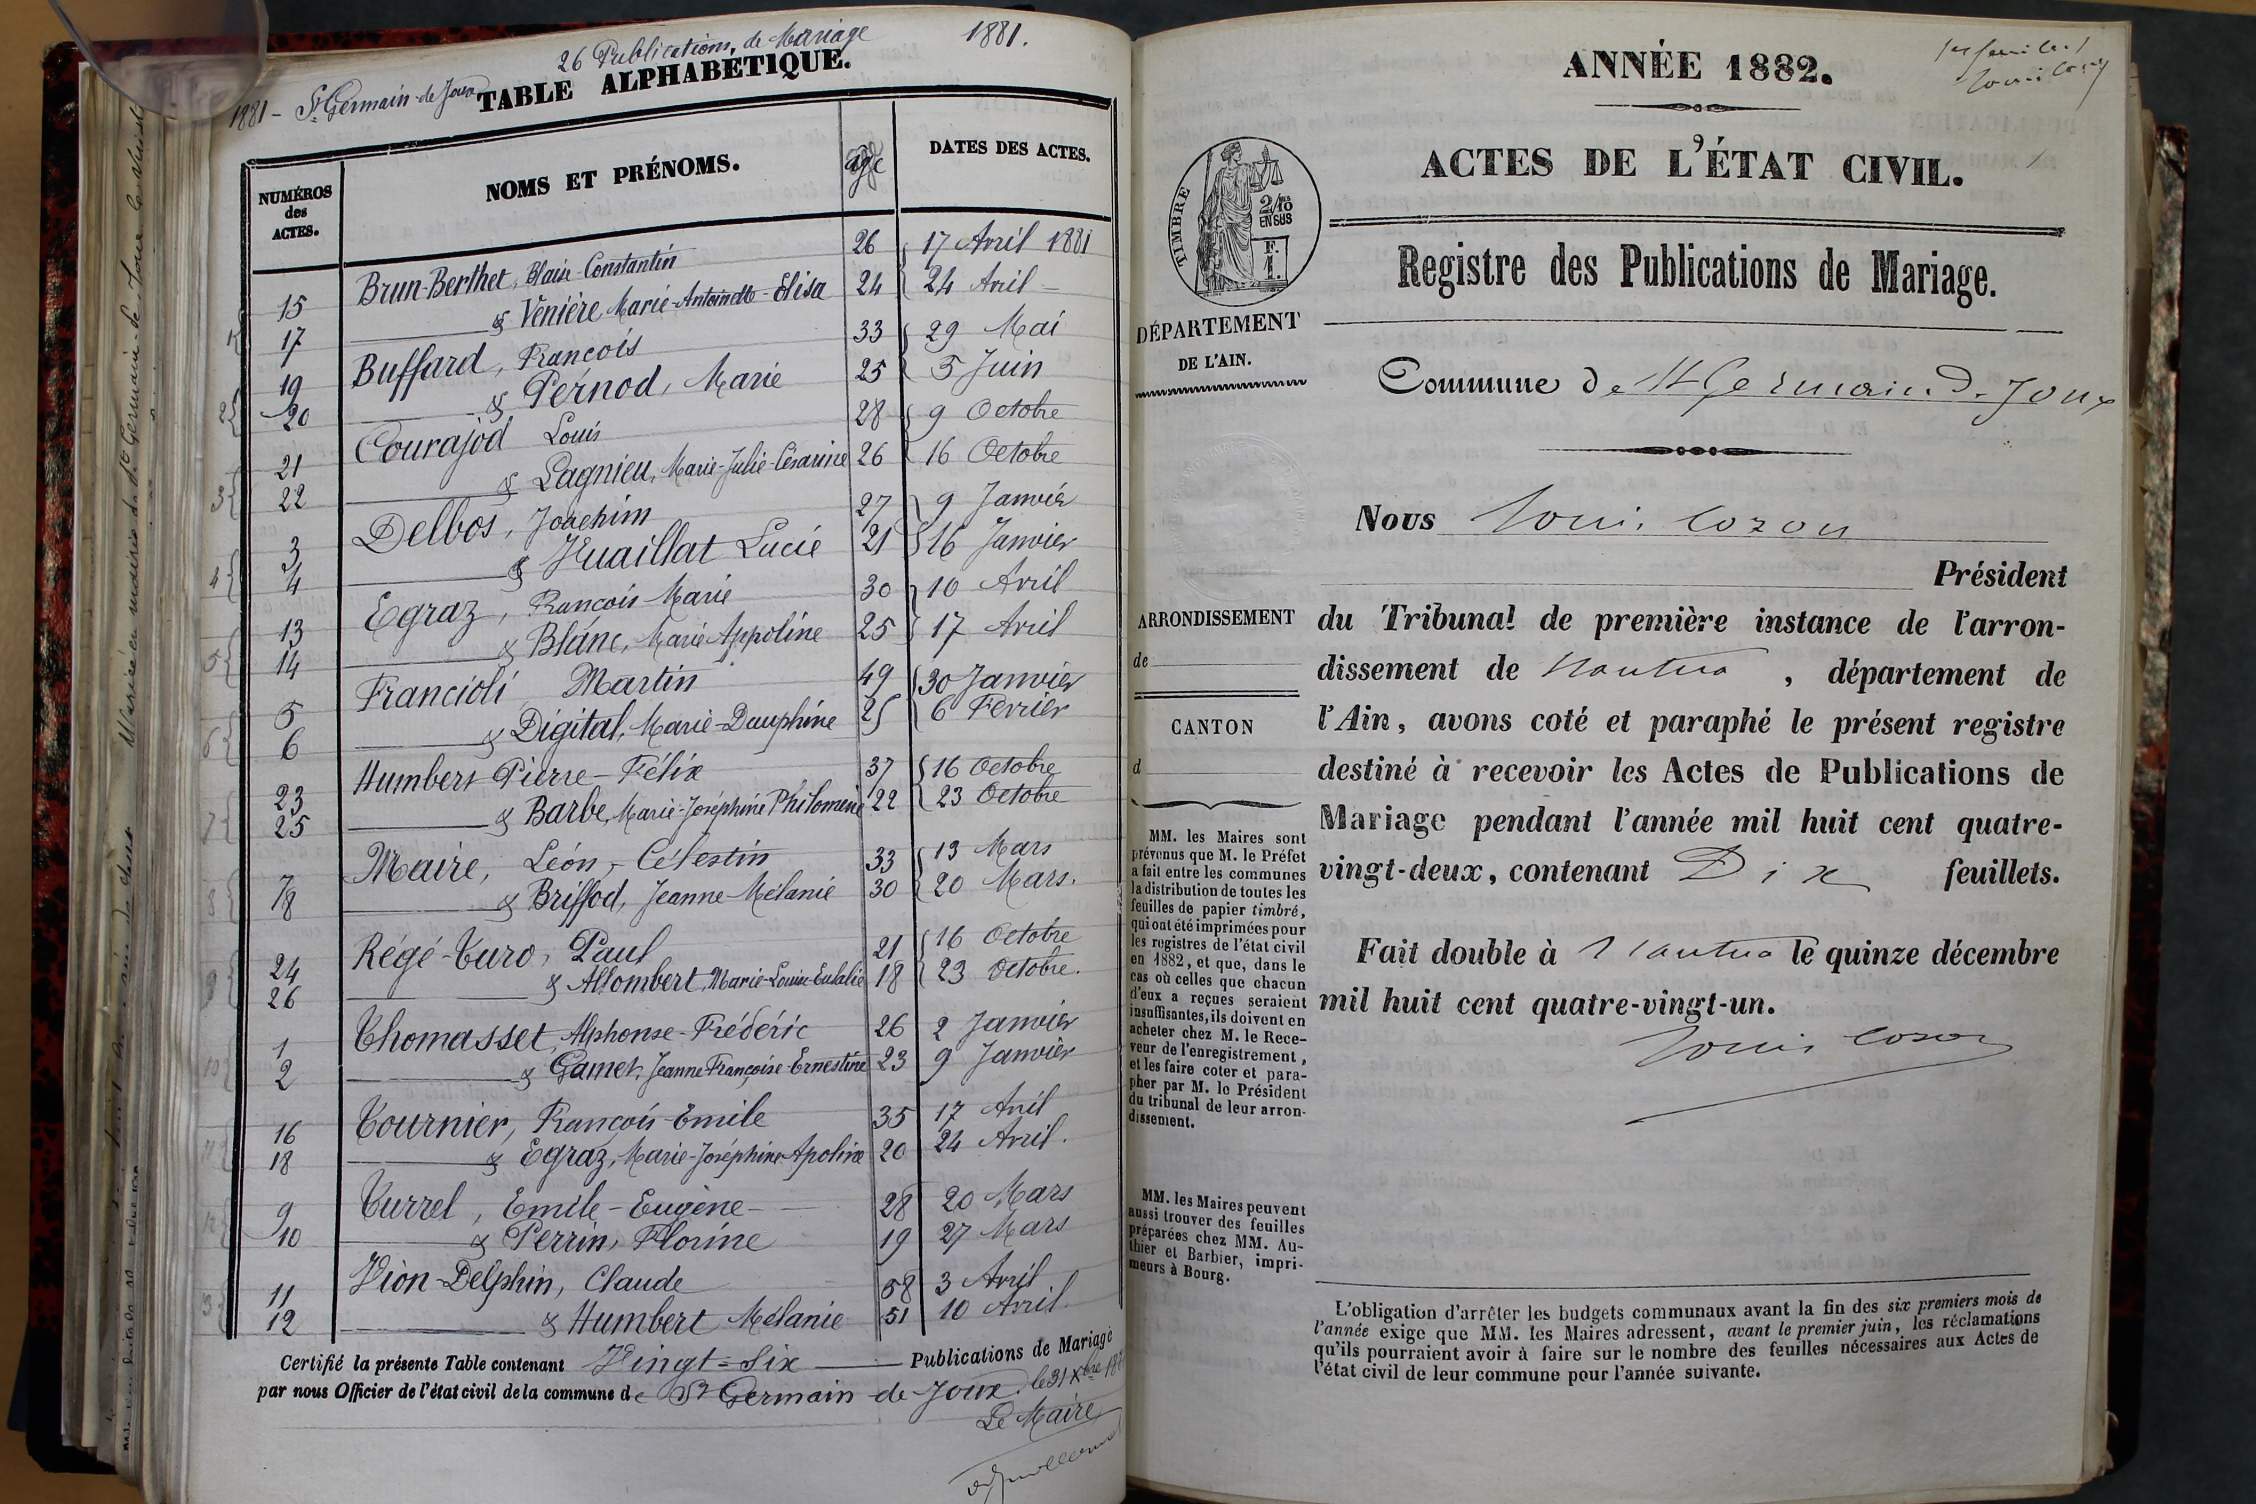 26 Publications de Mariage 1881.
1881 - St Germain-de-Joux
TABLE ALPHABÉTIQUE.
NUMÉROS des ACTES. NOMS ET PRÉNOMS. age DATES DES ACTES.
15 Brun-Berthet, Blaise-Constantin 26 17 Avril 1881
17 & Venière Marie-Antoinette-Elisa 24 24 Avril -
19 Buffard, François 33 29 Mai
20 & Pernod, Marie 25 5 Juin
21 Courajod Louis 28 9 Octobre
22 & Lagnieu, Marie-Julie-Césarine 26 16 Octobre
3 Delbos, Joachim 27 9 Janvier
4 & Vuaillat Lucie 21 16 Janvier
13 Egraz, François-Marie 30 10 Avril
14 & Blanc, Marie Appoline 25 17 Avril
5 Francioli Martin 49 30 Janvier
6 & Digital, Marie-Dauphine 25 6 Février
23 Humbert Pierre-Félix 37 16 Octobre
25 & Barbe, Marie-Joséphine Philomène 22 23 Octobre
7 Maire, Léon, Célestin 33 13 Mars
8 & Briffod, Jeanne Mélanie 30 20 Mars.
24 Régé-Turo, Paul 21 16 Octobre
26 & Allombert, Marie-Louise-Eulalie 18 23 Octobre.
1 Thomasset, Alphonse-Frédéric 26 2 Janvier
2 & Gamet, Jeanne Françoise-Ernestine 23 9 Janvier
16 Tournier, François-Emile 35 17 Avril
18 & Egraz, Marie-Joséphine-Apoline 20 24 Avril.
9 Turrel, Emile-Eugène 28 20 Mars
10 & Perrin, Florine 19 27 Mars
11 Vion-Delphin, Claude 58 3 Avril
12 & Humbert Mélanie 51 10 Avril.
Certifié la présente Table contenant Vingt=Six Publications de Mariage
par nous Officier de l'état civil de la commune de St Germain de Joux, le 31 Xbre
Le Maire
ANNÉE 1882.
ACTES DE L'ÉTAT CIVIL.
TIMBRE
2/10 EN SUS
F. 1.
Registre des Publications de Mariage.
DÉPARTEMENT
DE L'AIN.
Commune de St Germain d. Joux
Nous Louis Cozon
Président
ARRONDISSEMENT
de
CANTON
d
du Tribunal de première instance de l'arron-
dissement de Nantua, département de
l'Ain, avons coté et paraphé le présent registre
destiné à recevoir les Actes de Publications de
Mariage pendant l'année mil huit cent quatre-
vingt-deux, contenant Dix feuillets.
Fait double à Nantua le quinze décembre
mil huit cent quatre-vingt-un.
Louis Cozon
MM. les Maires sont
prévenus que M. le Préfet
a fait entre les communes
la distribution de toutes les
feuilles de papier timbré,
qui ont été imprimées pour
les registres de l'état civil
en 1882, et que, dans le
cas où celles que chacun
d'eux a reçues seraient
insuffisantes, ils doivent en
acheter chez M. le Rece-
veur de l'enregistrement,
et les faire coter et para-
pher par M. le Président
du tribunal de leur arron-
dissement.
MM. les Maires peuvent
aussi trouver des feuilles
préparées chez MM. Au-
thier et Barbier, impri-
meurs à Bourg.
L'obligation d'arrêter les budgets communaux avant la fin des six premiers mois de
l'année exige que MM. les Maires adressent, avant le premier juin, les réclamations
qu'ils pourraient avoir à faire sur le nombre des feuilles nécessaires aux Actes de
l'état civil de leur commune pour l'année suivante.